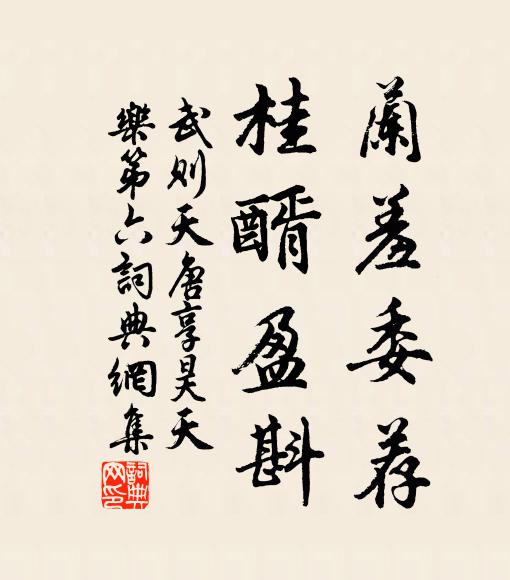 蘭羞委荐
桂醑盈斟
武則天唐享昊天
樂第六詞典網集
詞典
网印